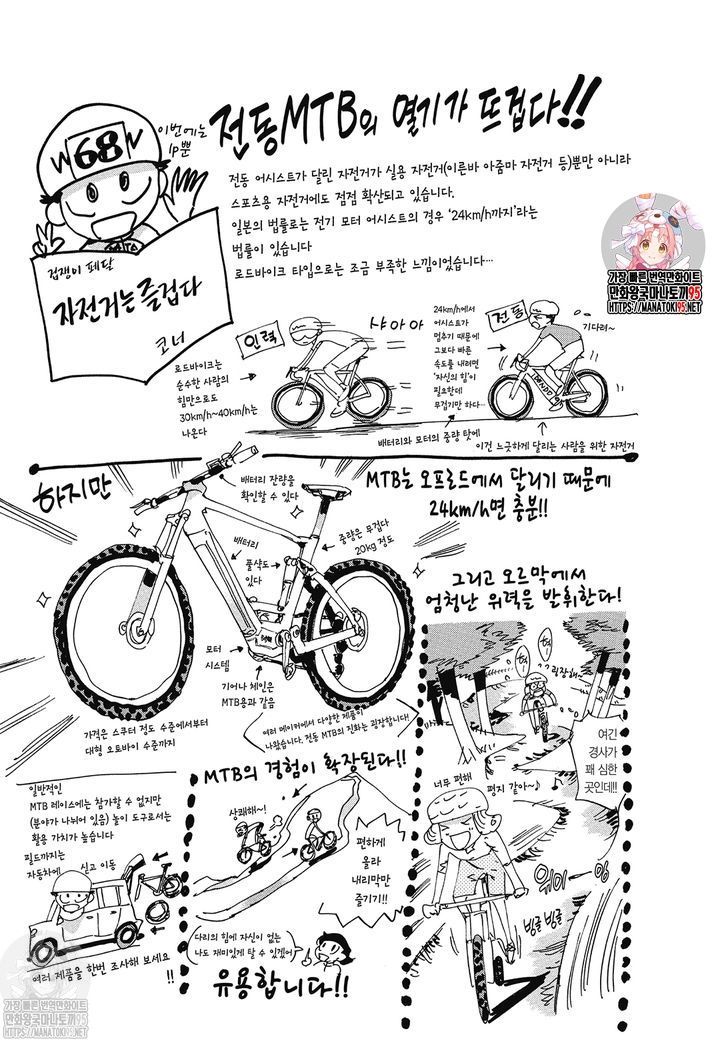 이번에는
1p뿐
전동MTB의 열기가 뜨겁다!!
68
겁쟁이 페달
자전거는 즐겁다
코너
전동 어시스트가 달린 자전거가 실용 자전거(이른바 아줌마 자전거 등)뿐만 아니라
스포츠용 자전거에도 점점 확산되고 있습니다.
일본의 법률로는 전기 모터 어시스트의 경우 '24km/h까지'라는
법률이 있습니다
로드바이크 타입으로는 조금 부족한 느낌이었습니다...
가장 빠른 번역만화이트
만화왕국마나토끼95
HTTPS://MANATOKI95.NET
인력
샤아아
로드바이크는
순수한 사람의
힘만으로도
30km/h~40km/h는
나온다
24km/h에서
어시스트가
멈추기 때문에
그보다 빠른
속도를 내려면
'자신의 힘'이
필요한데
무겁기만 하다...
전동
기다려~
배터리와 모터의 중량 탓에
이건 느긋하게 달리는 사람을 위한 자전거
하지만
배터리 잔량을
확인할 수 있다
MTB는 오프로드에서 달리기 때문에
24km/h면 충분!!
배터리
풀샥도
있다
중량은 무겁다
20kg 정도
모터
시스템
기어나 체인은
MTB용과 같음
가격은 스쿠터 정도 수준에서부터
대형 오토바이 수준까지
여러 메이커에서 다양한 제품이
나왔습니다. 전동 MTB의 진화는 굉장합니다!
그리고 오르막에서
엄청난 위력을 발휘한다!
헉
헉
굉장해~
여긴
경사가
꽤 심한
곳인데!!
너무 편해
평지 같아~♪
위이-잉
빙글 빙글
일반적인
MTB 레이스에는 참가할 수 없지만
(분야가 나뉘어 있음) 놀이 도구로서는
활용 가치가 높습니다
필드까지는
자동차에 싣고 이동
여러 제품을 한번 조사해 보세요
!!
MTB의 경험이 확장된다!!
상쾌해~!
편하게
올라
내리막만
즐기기!!
다리의 힘에 자신이 없는
나도 재미있게 탈 수 있겠어
유용합니다!!
가장 빠른 번역만화이트
만화왕국마나토끼95
HTTPS://MANATOKI95.NET